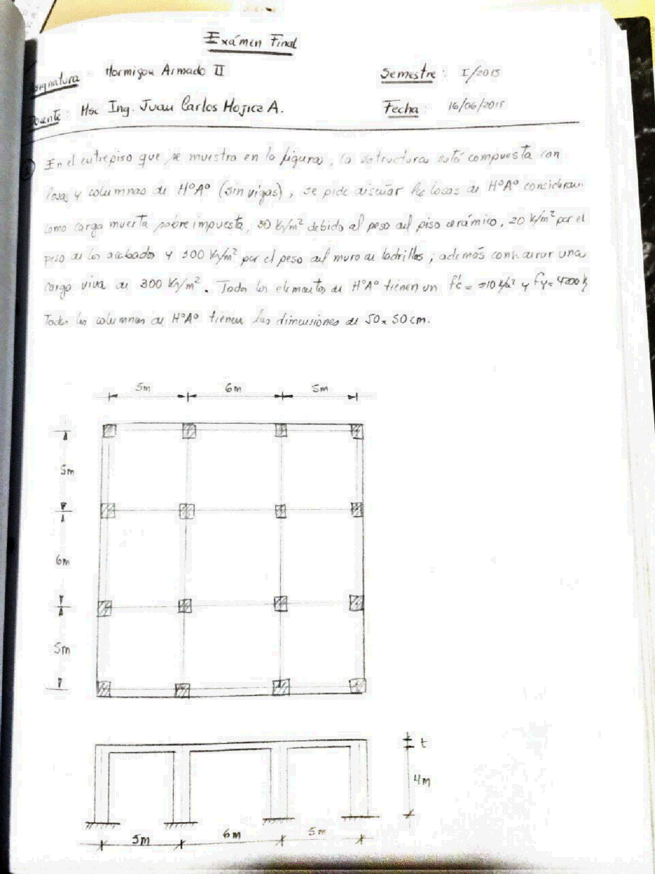 Exámen Final
Asignatura Hormigon Armado II Semestre: I/2015
Docente: Msc Ing. Juan Carlos Mojica A. Fecha 16/06/2015
En el entrepiso que se muestra en la figura, la estructura está compuesta con
losas y columnas de HºAº (sin vigas), se pide diseñar las losas de HºAº consideran
como carga muerta sobre impuesta, 30 Kg/m² debido al peso del piso cerámico, 20 Kg/m² por el
peso de los acabado y 100 Kg/m² por el peso del muro de ladrillos; además considerar una
carga viva de 300 Kg/m². Todo los elementos de HºAº tienen un f'c = 210 k/c² y fy = 4200 k
Todas las columnas de HºAº tienen las dimensiones de 50 x 50 cm.
5m 6m 5m
5m
6m
5m
t
4m
5m 6m 5m